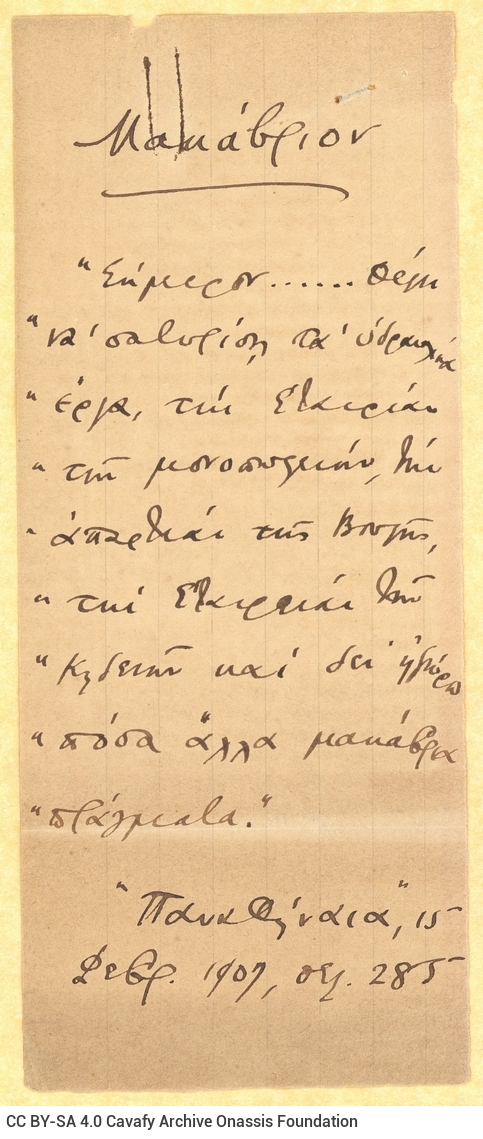 Μακάβριον
"Σήμερον...... θέλει
"να σατυρίση τα υδραυλικά
"έργα, την Εταιρίαν
"των μονοπωλείων, την
"απαρτίαν της Βουλής,
"την Εταιρείαν των
"Κηδειών και δεν ηξεύρω
"πόσα άλλα μακάβρια
"πράγματα."
"Παναθήναια", 15
Φεβρ. 1907, σελ. 285
CC BY-SA 4.0 Cavafy Archive Onassis Foundation